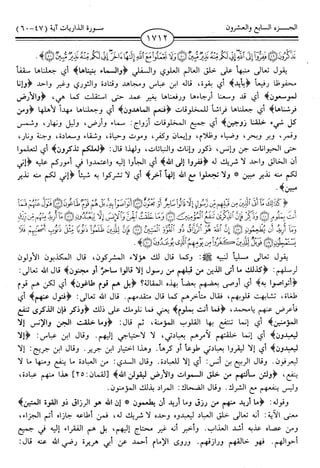 الجزء السابع والعشرون
١٧١٢
سورة الذاريات آية (٤٧-٦٠)
تَذَكَّرُونَ ﴿٤٩﴾ فَفِرُّوا إِلَى اللَّهِ إِنِّي لَكُم مِّنْهُ نَذِيرٌ مُّبِينٌ ﴿٥٠﴾ وَلَا تَجْعَلُوا مَعَ اللَّهِ إِلَٰهًا آخَرَ إِنِّي لَكُم مِّنْهُ نَذِيرٌ مُّبِينٌ ﴿٥١﴾
يقول تعالى منبهاً على خلق العالم العلوي والسفلي ﴿والسماء بنيناها﴾ أي جعلناها سقفاً
محفوظاً رفيعاً ﴿بأيد﴾ أي بقوة، قاله ابن عباس ومجاهد وقتادة والثوري وغير واحد ﴿وإنا
لموسعون﴾ أي قد وسعنا أرجاءها ورفعناها بغير عمد حتى استقلت كما هي، ﴿والأرض
فرشناها﴾ أي جعلناها فراشاً للمخلوقات ﴿فنعم الماهدون﴾ أي وجعلناها مهداً لأهلها ﴿ومن
كل شيء خلقنا زوجين﴾ أي جميع المخلوقات أزواج: سماء وأرض، وليل ونهار، وشمس
وقمر، وبر وبحر، وضياء وظلام، وإيمان وكفر، وموت وحياة، وشقاء وسعادة، وجنة ونار،
حتى الحيوانات جن وإنس، ذكور وإناث والنباتات، ولهذا قال: ﴿لعلكم تذكرون﴾ أي لتعلموا
أن الخالق واحد لا شريك له ﴿ففروا إلى الله﴾ أي الجأوا إليه واعتمدوا في أموركم عليه ﴿إني
لكم منه نذير مبين * ولا تجعلوا مع الله إلهاً آخر﴾ أي لا تشركوا به شيئاً ﴿إني لكم منه نذير
مبين﴾.
كَذَٰلِكَ مَا أَتَى الَّذِينَ مِن قَبْلِهِم مِّن رَّسُولٍ إِلَّا قَالُوا سَاحِرٌ أَوْ مَجْنُونٌ ﴿٥٢﴾ أَتَوَاصَوْا بِهِ بَلْ هُمْ قَوْمٌ طَاغُونَ ﴿٥٣﴾ فَتَوَلَّ عَنْهُمْ فَمَا
أَنتَ بِمَلُومٍ ﴿٥٤﴾ وَذَكِّرْ فَإِنَّ الذِّكْرَىٰ تَنفَعُ الْمُؤْمِنِينَ ﴿٥٥﴾ وَمَا خَلَقْتُ الْجِنَّ وَالْإِنسَ إِلَّا لِيَعْبُدُونِ ﴿٥٦﴾ مَا أُرِيدُ مِنْهُم مِّن رِّزْقٍ
وَمَا أُرِيدُ أَن يُطْعِمُونِ ﴿٥٧﴾ إِنَّ اللَّهَ هُوَ الرَّزَّاقُ ذُو الْقُوَّةِ الْمَتِينُ ﴿٥٨﴾ فَإِنَّ لِلَّذِينَ ظَلَمُوا ذَنُوبًا مِّثْلَ ذَنُوبِ أَصْحَابِهِمْ فَلَا
يَسْتَعْجِلُونِ ﴿٥٩﴾ فَوَيْلٌ لِّلَّذِينَ كَفَرُوا مِن يَوْمِهِمُ الَّذِي يُوعَدُونَ ﴿٦٠﴾
يقول تعالى مسلياً لنبيه ﷺ: وكما قال لك هؤلاء المشركون، قال المكذبون الأولون
لرسلهم: ﴿كذلك ما أتى الذين من قبلهم من رسول إلا قالوا ساحر أو مجنون﴾ قال الله تعالى:
﴿أتواصوا به﴾ أي أوصى بعضهم بعضاً بهذه المقالة؟ ﴿بل هم قوم طاغون﴾ أي لكن هم قوم
طغاة، تشابهت قلوبهم، فقال متأخرهم كما قال متقدمهم. قال الله تعالى: ﴿فتول عنهم﴾ أي
فأعرض عنهم يامحمد، ﴿فما أنت بملوم﴾ يعني فما نلومك على ذلك ﴿وذكر فإن الذكرى تنفع
المؤمنين﴾ أي إنما تنتفع بها القلوب المؤمنة، ثم قال: ﴿وما خلقت الجن والإنس إلا
ليعبدون﴾ أي إنما خلقتهم لآمرهم بعبادتي، لا لاحتياجي إليهم. وقال ابن عباس: ﴿إلا
ليعبدون﴾ أي إلا ليقروا بعبادتي طوعاً أو كرهاً. وهذا اختيار ابن جرير. وقال ابن جريج: إلا
ليعرفون. وقال الربيع بن أنس: أي إلا للعبادة. وقال السدي: من العبادة ما ينفع ومنها ما لا
ينفع، ﴿ولئن سألتهم من خلق السموات والأرض ليقولن الله﴾ [لقمان: ٢٥] هذا منهم عبادة،
وليس ينفعهم مع الشرك. وقال الضحاك: المراد بذلك المؤمنون.
وقوله: ﴿ما أريد منهم من رزق وما أريد أن يطعمون * إن الله هو الرزاق ذو القوة المتين﴾
معنى الآية: أنه تعالى خلق العباد ليعبدوه وحده لا شريك له، فمن أطاعه جازاه أتم الجزاء،
ومن عصاه عذبه أشد العذاب. وأخبر أنه غير محتاج إليهم، بل هم الفقراء إليه في جميع
أحوالهم. فهو خالقهم ورازقهم. وروى الإمام أحمد عن أبي هريرة رضي الله عنه قال: